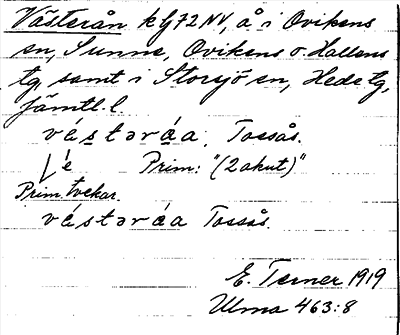 Västerån k Ig 72 NV, å i Ovikens
sn, Sunne, Ovikens o. Hallens
tg samt i Storsjö sn, Hede tg,
Jämtl. l.
vástəráa, Tossås.
é Prim: "(2 akut)"
Prim. tvekar.
vástəráa Tossås.
E. Terner 1919
Ulma 463:8